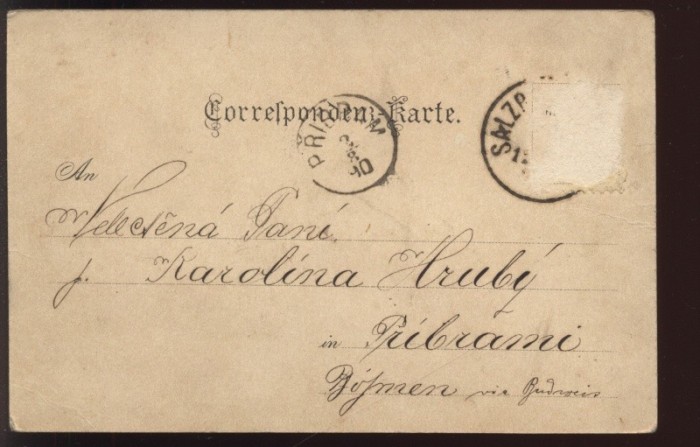 Correspondenz-Karte.
PŘIBRAM
10
SALZB
An
Velectěná Paní
p. Karolína Hrubý
in Příbrami
Böhmen via Budweis